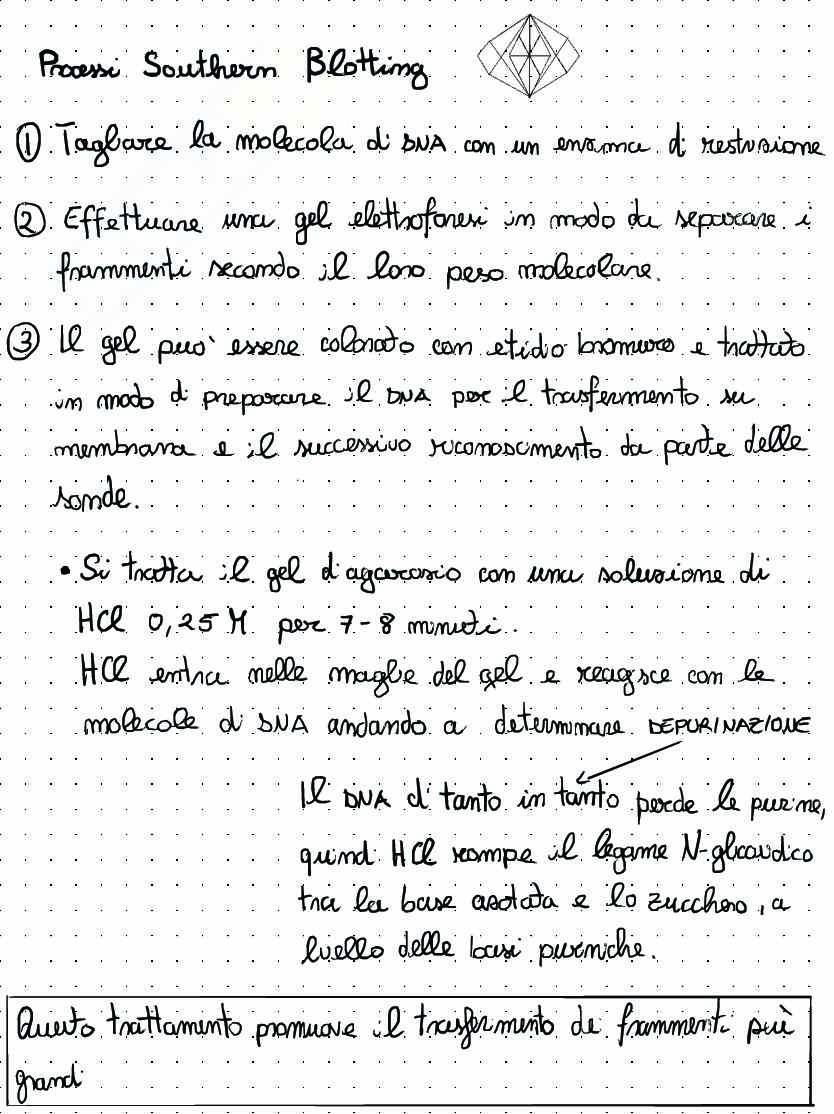 Processi Southern Blotting
① Tagliare la molecola di DNA con un enzima di restrizione
② Effettuare una gel elettroforesi in modo da separare i
frammenti secondo il loro peso molecolare.
③ Il gel può essere colorato con etidio bromuro e trattato
in modo di preparare il DNA per il trasferimento su
membrana e il successivo riconoscimento da parte delle
sonde.
• Si tratta il gel d'agarosio con una soluzione di
HCl 0,25 M per 7-8 minuti.
HCl entra nelle maglie del gel e reagisce con le
molecole di DNA andando a determinare DEPURINAZIONE
Il DNA di tanto in tanto perde le purine,
quindi HCl rompe il legame N-glicosidico
tra la base azotata e lo zucchero, a
livello delle basi puriniche.
Questo trattamento promuove il trasferimento dei frammenti più
grandi